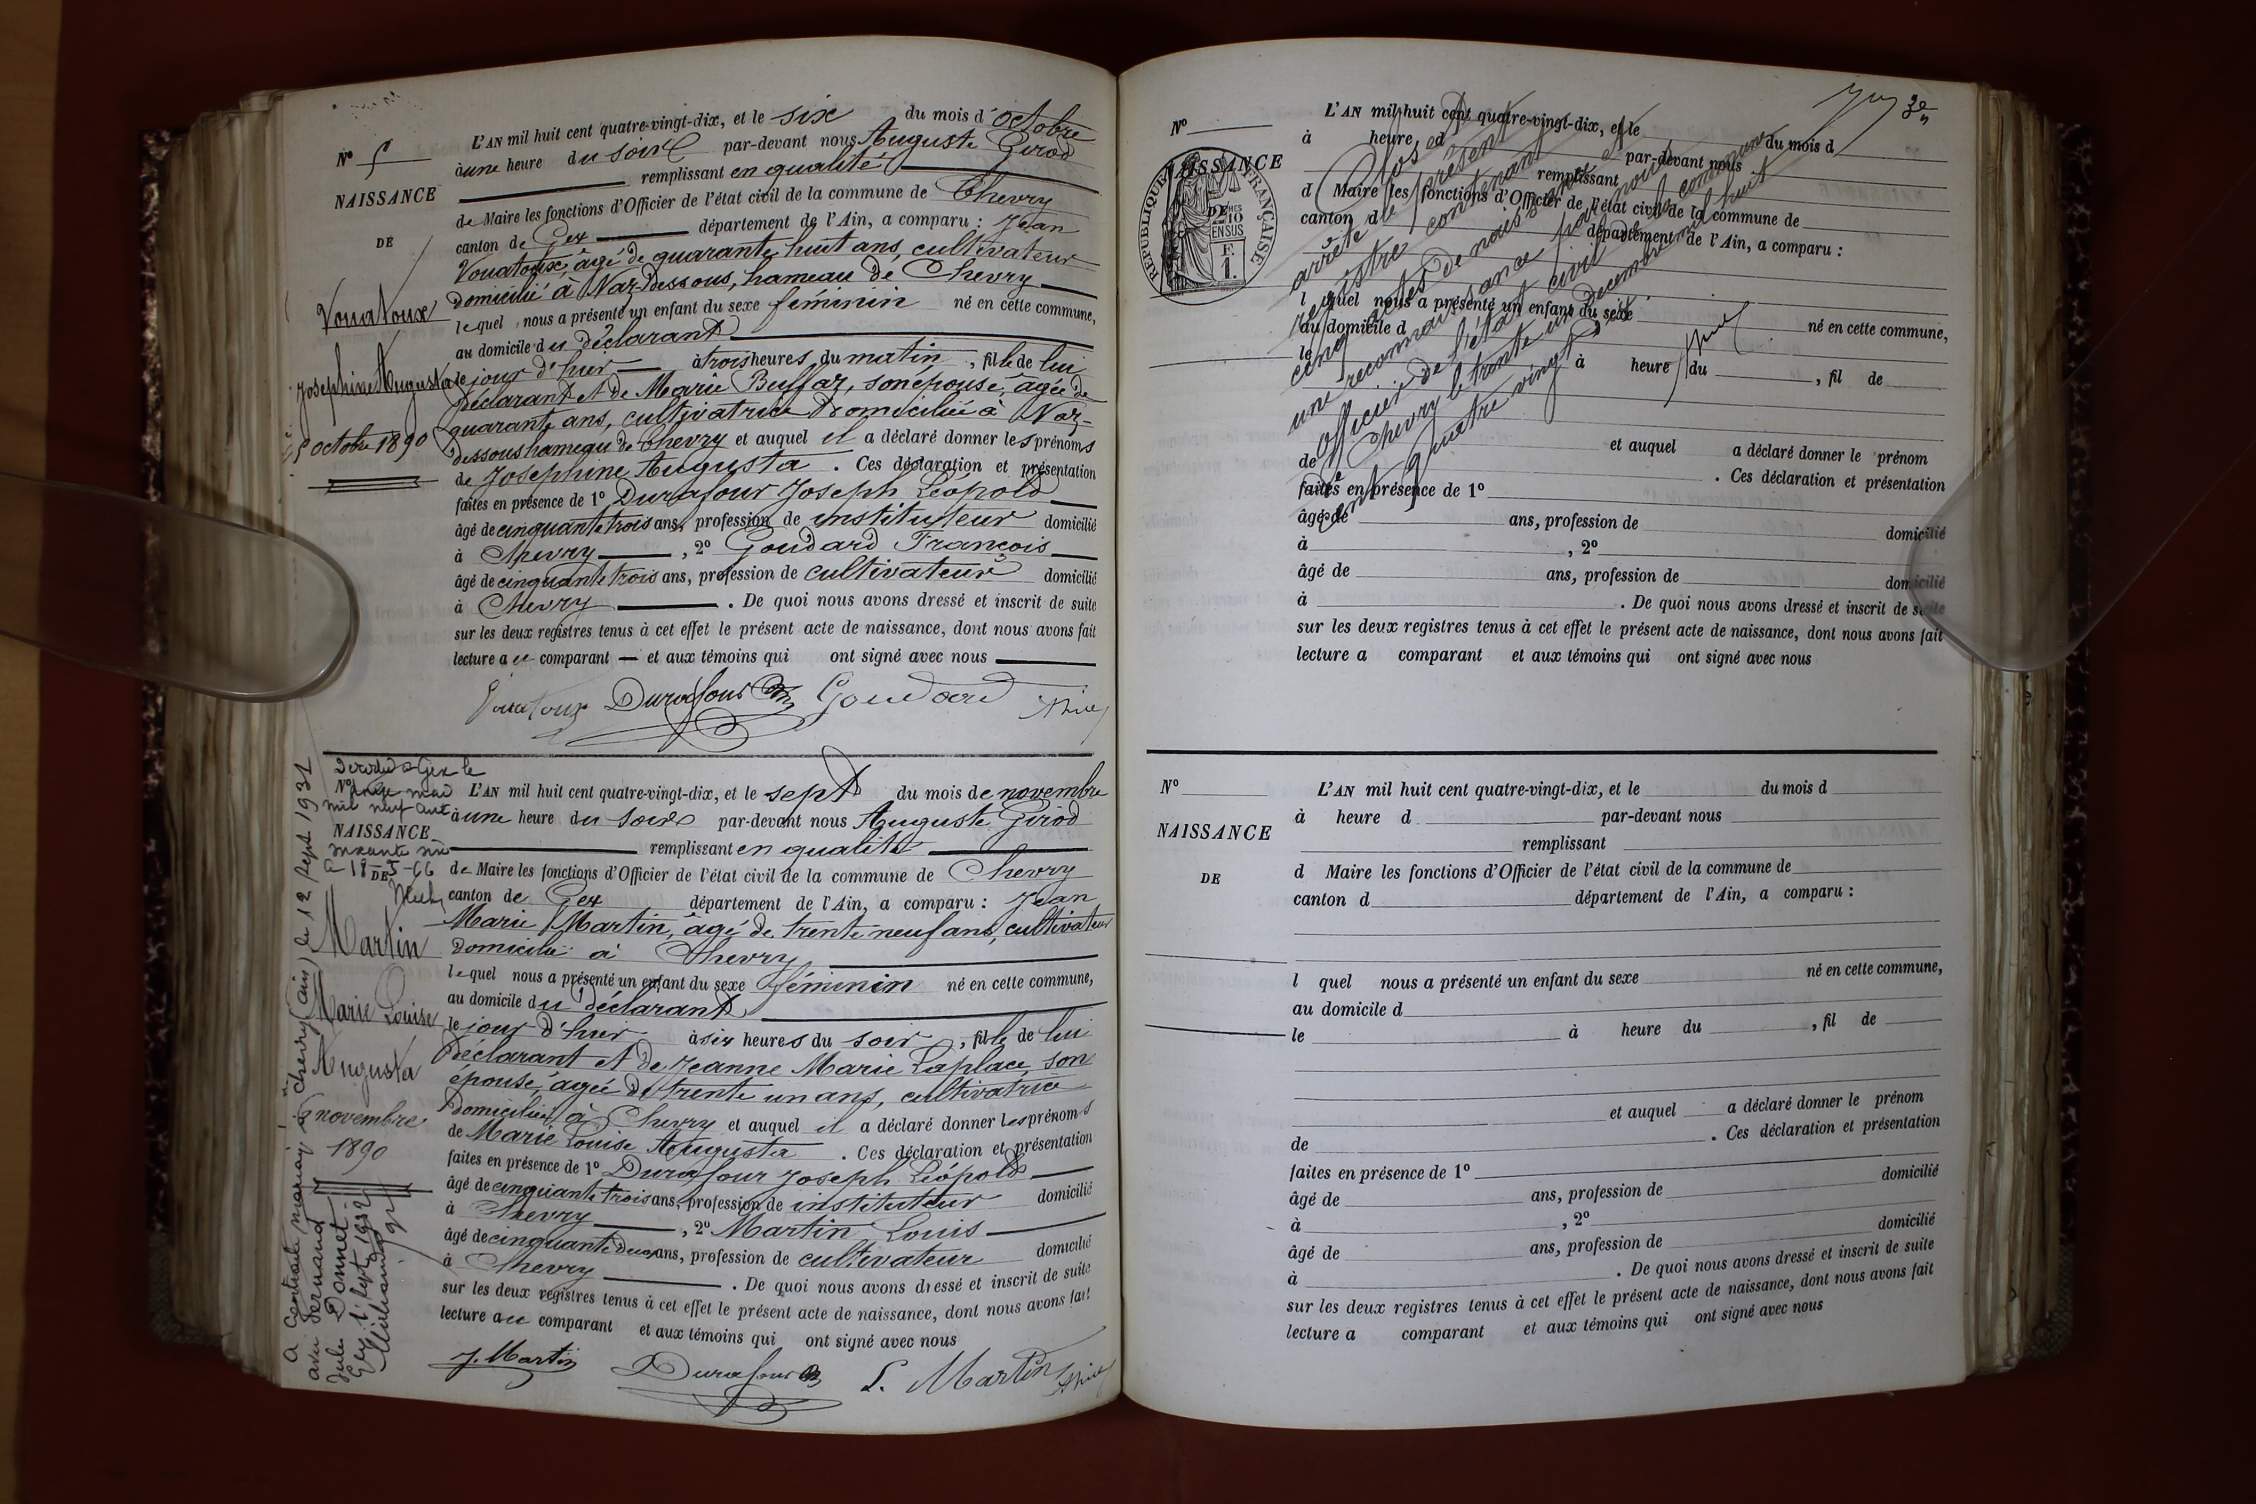 N° 5
NAISSANCE
DE
Vouatoux
Joséphine Augusta
5 octobre 1890
L'AN mil huit cent quatre-vingt-dix, et le six du mois d'octobre
à une heure du soir par-devant nous Auguste Girod
remplissant en qualité
de Maire les fonctions d'Officier de l'état civil de la commune de Chevry
canton de Gex département de l'Ain, a comparu : Jean
Vouatoux, âgé de quarante huit ans, cultivateur
domicilié à Naz-Dessous, hameau de Chevry
lequel nous a présenté un enfant du sexe féminin né en cette commune,
au domicile du déclarant
le jour d'hier à trois heures du matin, fille de lui
déclarant et de Marie Buffaz, son épouse, âgée de
quarante ans, cultivatrice domiciliée à Naz-
dessous hameau de Chevry et auquel il a déclaré donner les prénoms
de Joséphine Augusta. Ces déclaration et présentation
faites en présence de 1° Durafour Joseph Léopold
âgé de cinquante trois ans, profession de instituteur domicilié
à Chevry, 2° Goudard François
âgé de cinquante trois ans, profession de cultivateur domicilié
à Chevry. De quoi nous avons dressé et inscrit de suite
sur les deux registres tenus à cet effet le présent acte de naissance, dont nous avons fait
lecture au comparant et aux témoins qui ont signé avec nous
Vouatoux Durafour Goudard
Décédée à Gex le
N° onze mai
mil neuf cent
NAISSANCE
soixante six
le 18-5-66
DE
Martin
Marie Louise
Augusta
6 novembre
1890
A contracté mariage à Chevry (Ain) le 12 sept 1931
avec Fernand
Jules Donnet
Gex le 1 sept 1932
L'AN mil huit cent quatre-vingt-dix, et le sept du mois de novembre
à une heure du soir par-devant nous Auguste Girod
remplissant en qualité
de Maire les fonctions d'Officier de l'état civil de la commune de Chevry
canton de Gex département de l'Ain, a comparu : Jean
Marie Martin, âgé de trente neuf ans, cultivateur
domicilié à Chevry
lequel nous a présenté un enfant du sexe féminin né en cette commune,
au domicile du déclarant
le jour d'hier à six heures du soir, fille de lui
déclarant et de Jeanne Marie Laplace, son
épouse, âgée de trente un ans, cultivatrice
domiciliée à Chevry et auquel il a déclaré donner les prénoms
de Marie Louise Augusta. Ces déclaration et présentation
faites en présence de 1° Durafour Joseph Léopold
âgé de cinquante trois ans, profession de instituteur domicilié
à Chevry, 2° Martin Louis
âgé de cinquante deux ans, profession de cultivateur domicilié
à Chevry. De quoi nous avons dressé et inscrit de suite
sur les deux registres tenus à cet effet le présent acte de naissance, dont nous avons fait
lecture au comparant et aux témoins qui ont signé avec nous
J. Martin Durafour L. Martin
3e
N°
NAISSANCE
DE
RÉPUBLIQUE FRANÇAISE
L'AN mil huit cent quatre-vingt-dix, et le du mois d
à heure d par-devant nous
remplissant
d Maire les fonctions d'Officier de l'état civil de la commune de
canton d département de l'Ain, a comparu :
l quel nous a présenté un enfant du sexe né en cette commune,
au domicile d
le à heure du , fil de
et auquel a déclaré donner le prénom
de . Ces déclaration et présentation
faites en présence de 1°
âgé de ans, profession de domicilié
à , 2°
âgé de ans, profession de domicilié
à . De quoi nous avons dressé et inscrit de suite
sur les deux registres tenus à cet effet le présent acte de naissance, dont nous avons fait
lecture a comparant et aux témoins qui ont signé avec nous
Clos et
arrêté le présent
registre contenant
cinq actes de naissance et
une reconnaissance par nous
officier de l'état civil de la commune
de Chevry le trente un décembre mil huit
cent quatre vingt dix
N°
NAISSANCE
DE
L'AN mil huit cent quatre-vingt-dix, et le du mois d
à heure d par-devant nous
remplissant
d Maire les fonctions d'Officier de l'état civil de la commune de
canton d département de l'Ain, a comparu :
l quel nous a présenté un enfant du sexe né en cette commune,
au domicile d
le à heure du , fil de
et auquel a déclaré donner le prénom
de . Ces déclaration et présentation
faites en présence de 1°
âgé de ans, profession de domicilié
à , 2°
âgé de ans, profession de domicilié
à . De quoi nous avons dressé et inscrit de suite
sur les deux registres tenus à cet effet le présent acte de naissance, dont nous avons fait
lecture a comparant et aux témoins qui ont signé avec nous